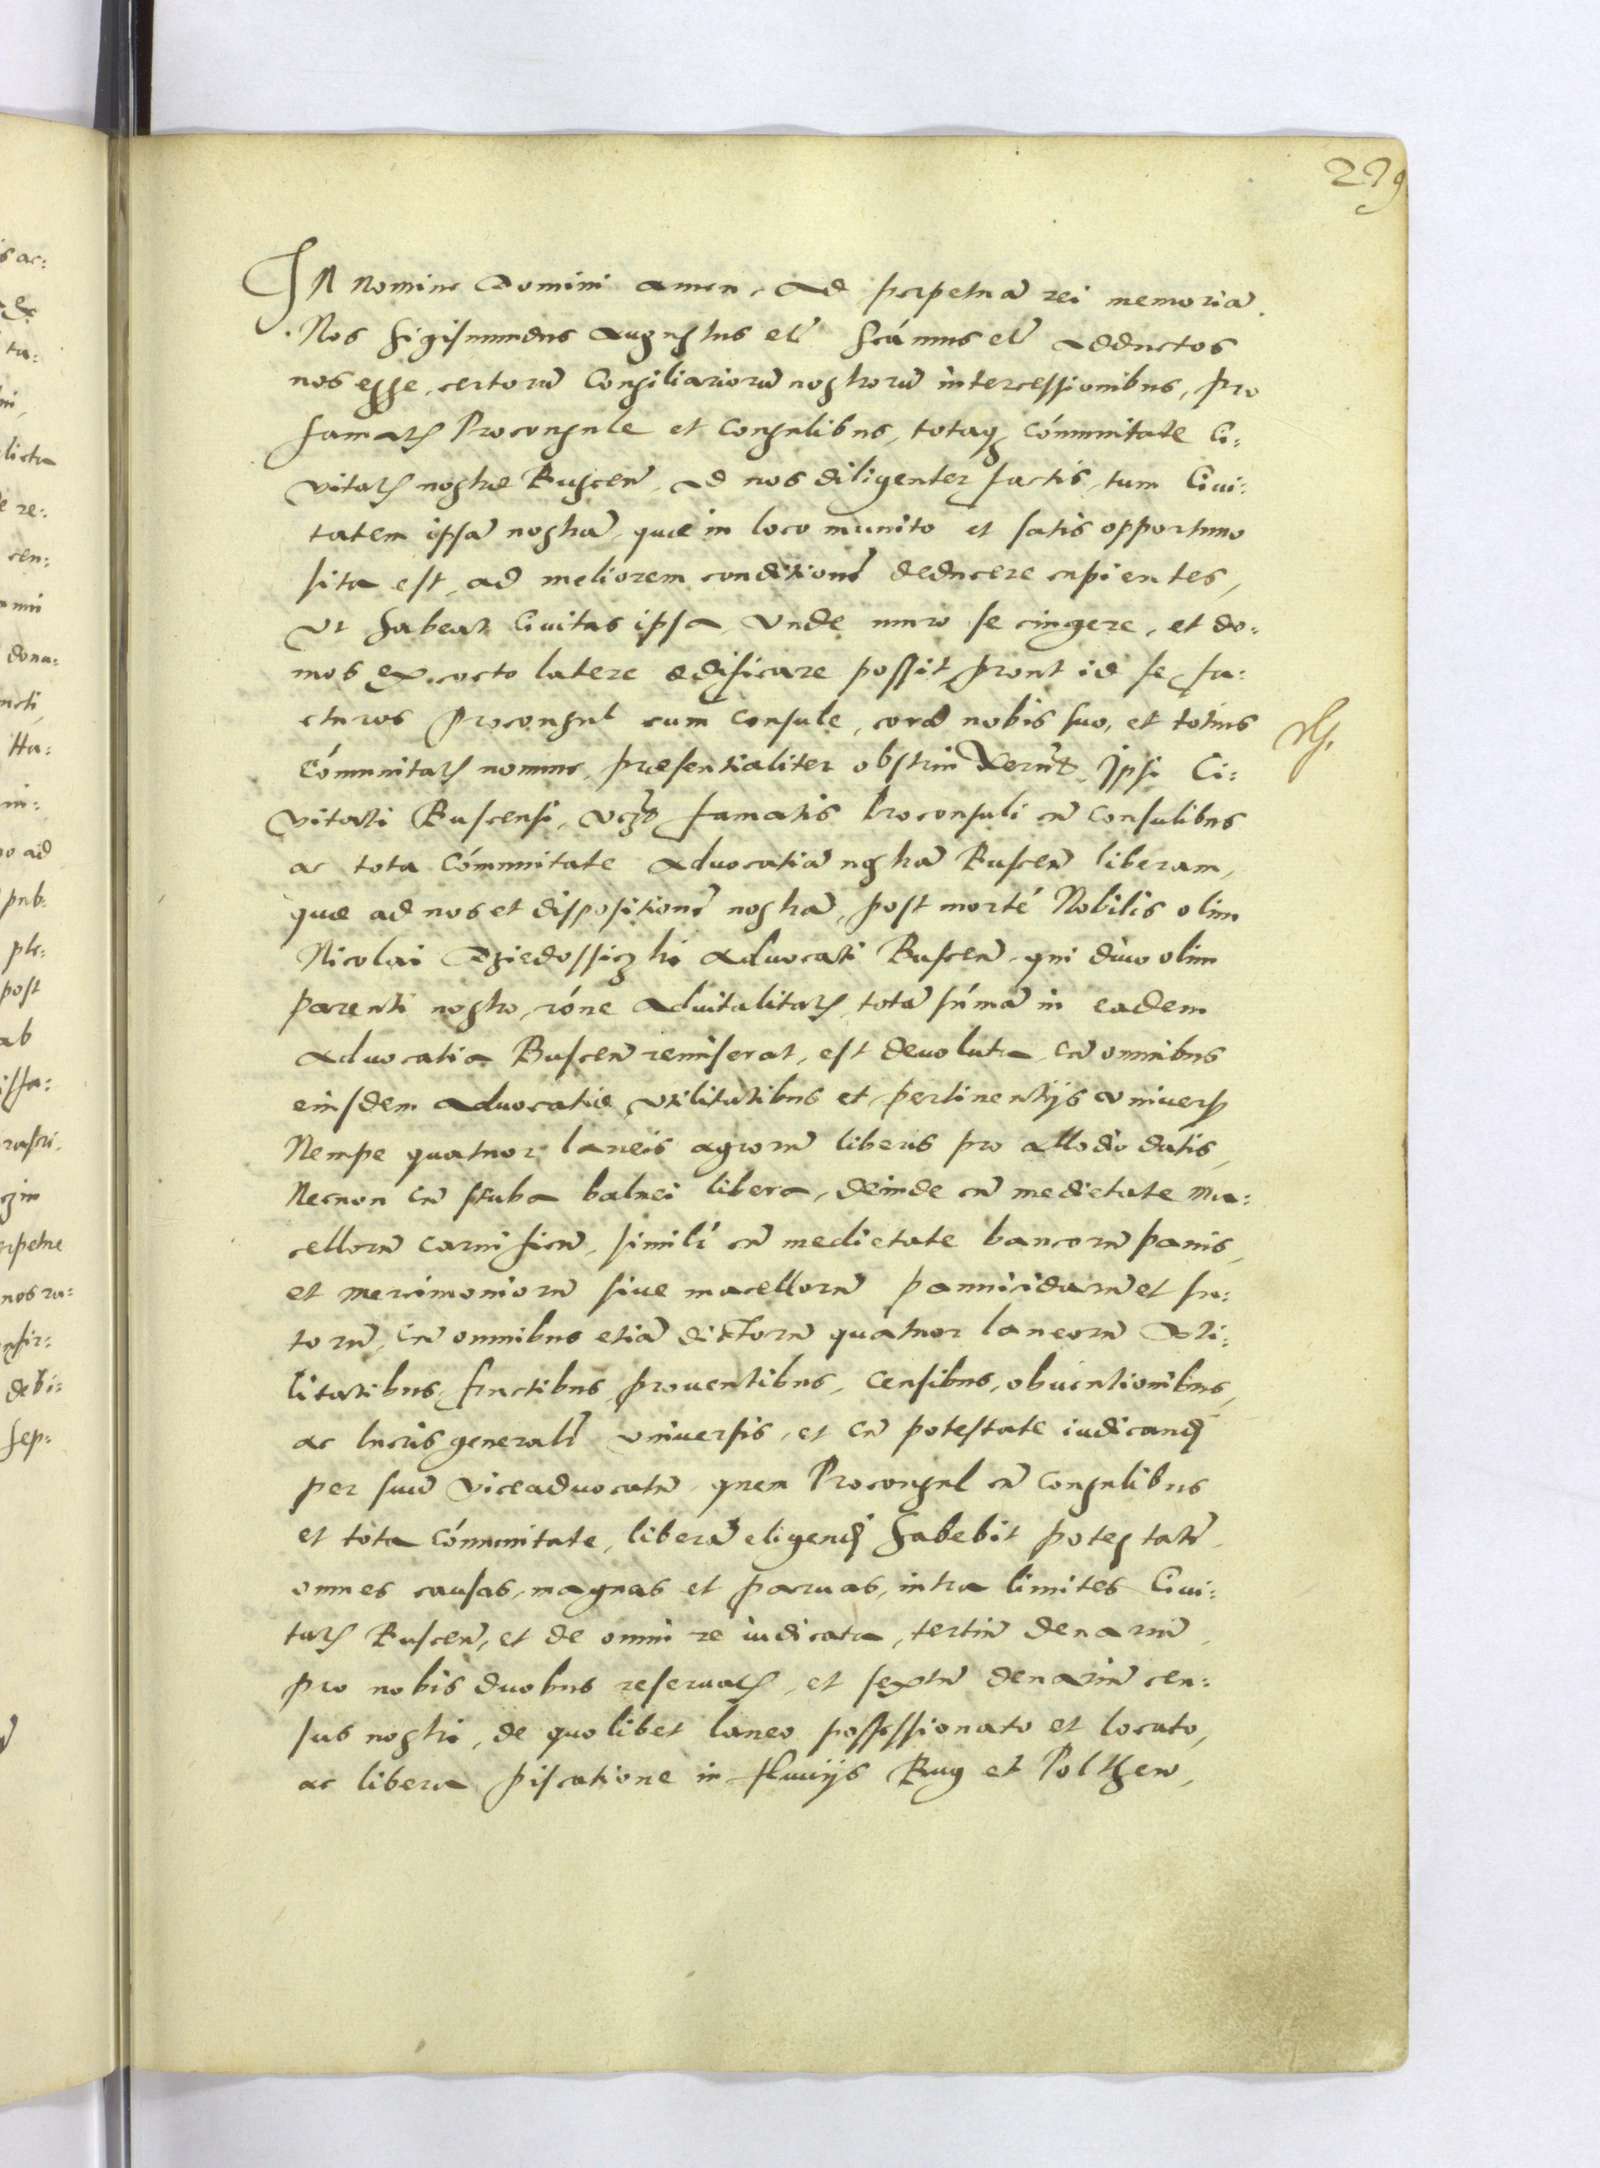 229
In nomine Domini amen, Ad perpetuā rei memoriā.
Nos Sigismundus Augustus etc̃ Scām̃us etc̃ adductos
nos esse, certorũ Consiliariorũ nostrorũ intercessionibus, pro
famatis Proconsule et Consulibus, totaq; Cōmunitate Ci:
vitatis nostræ Buscen̄, ad nos diligenter factis, tum Civi:
tatem ipsā nostrā, quæ in loco munito et satis opportuno
sita est, ad meliorem conditionē deducere cupientes,
Vt habeat Civitas ipsa, Vnde muro se cingere, et do:
mos ex cocto latere ædificare possit, prout id se fa:
cturos Proconsul cum Consule, corā nobis suo, et totius
Cōmunitatis nomine, præsentialiter obstrinxerūt, Ipsi Ci:
vitati Buscensi, vczt famatis Proconsuli cū Consulibus
ac tota Cōmunitate Advocatiā nostrā Buscen̄ liberam,
quæ ad nos et dispositionē nostrā, post mortē Nobilis olim
Nicolai Dziedossiczki Advocati Buscen̄, qui divo olim
parenti nostro, rōne Advitalitatis, totā sūmā in eadem
Advocatia Buscen̄ remiserat, est devoluta, cū omnibus
eiusdem Advocatiæ vtilitatibus et pertinentijs vniversis
Nempe quatuor laneis agrorū liberis pro allodio datis,
Necnon cū stuba balnei libera, deinde cū medietate ma:
cellorū carnificū, similĩ cū medietate bancorū panis,
et mercimoniorū sive macellorū pannicidarū et su:
torū, cū omnibus etiā dictorū quatuor laneorū vti:
litatibus, fructibus, proventibus, censibus, obventionibus,
ac lucris generalr̃ vniversis, et cū potestate iudicandi
per suū viceadvocatū, quem Proconsul cū Consulibus
et tota Cōmunitate, liberā eligendi habebit potestatē,
omnes causas, magnas et parvas, intra limites Civi:
tatis Buscen̄, et de omni re iudicata, tertiū denariū,
pro nobis duobus reservatis, et sextū denariū cen:
sus nostri, de quolibet laneo possessionato et locato,
ac libera piscatione in fluvijs Bug et Polthew,